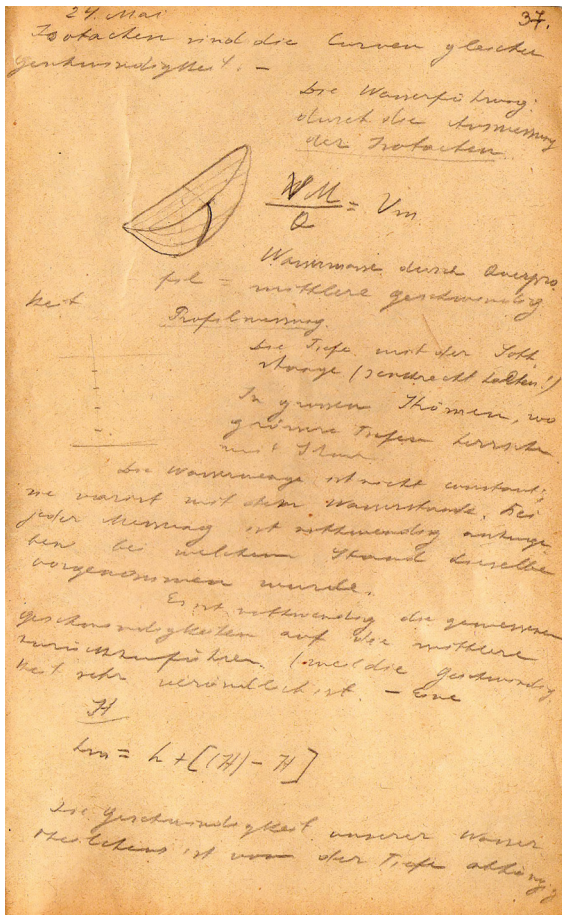 24. Mai
37.
Isotachen sind die Curven gleicher
Geschwindigkeit. –
Die Wasserführung
durch die Ausmessung
der Isotachen.
WM / Q = Vm
Wassermasse durch Querpro
fil = mittlere geschwindig
keit
Profilmessung.
Die Tiefe mit der
stange (senkrecht halten!)
In grossen Strömen, wo
grössere Tiefen herrschen
mit
Die Wassermenge ist nicht constant,
sie variirt mit dem Wasserstande. Bei
jeder Messung ist nothwendig anzuge
ben bei welchem Stand dieselbe
vorgenommen wurde.
Es ist nothwendig die gemessenen
geschwindigkeiten auf die mittlere
zurückzuführen. (weil die Geschwindig
keit sehr veränderlich ist. – Eine
H
hm = h + [(H) – H]
Die Geschwindigkeit unserer Wasser
theilchens ist von der Tiefe abhängig